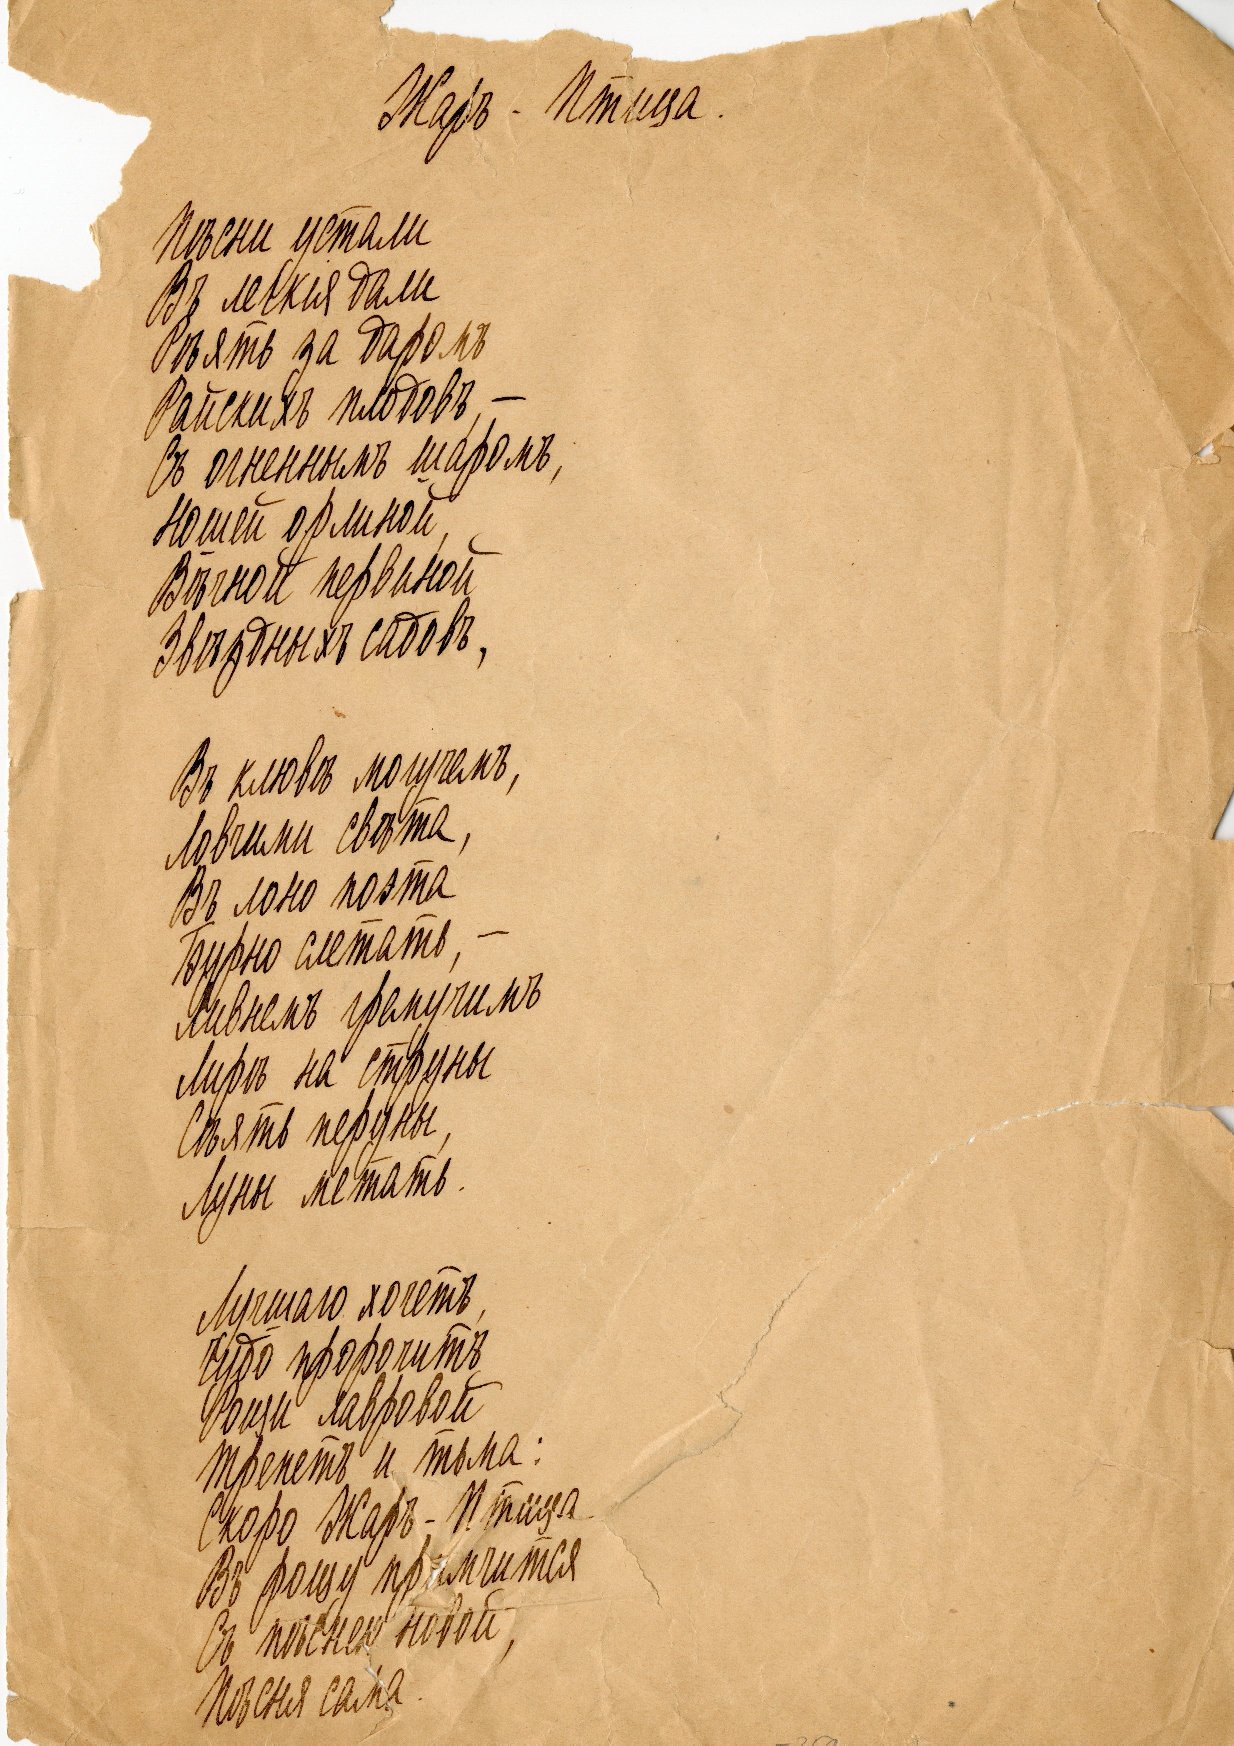 Жаръ - Птица.
Пѣсни устали
Въ легкія дали
Рѣять за даромъ
Райскихъ плодовъ, —
Съ огненнымъ шаромъ,
Ношей орлиной,
Вѣчной первиной
Звѣздныхъ садовъ,
Въ клювѣ могучемъ,
Ловчими свѣта,
Въ лоно поэта
Бурно слетать, —
Ливнемъ гремучимъ
Лирѣ на струны
Сѣять перуны,
Луны метать.
Лучшаго хочетъ,
Чудо пророчитъ
Рощи лавровой
Трепетъ и тьма:
Скоро Жаръ - Птица
Въ рощу примчится
Съ пѣснею новой,
Пѣсня сама.